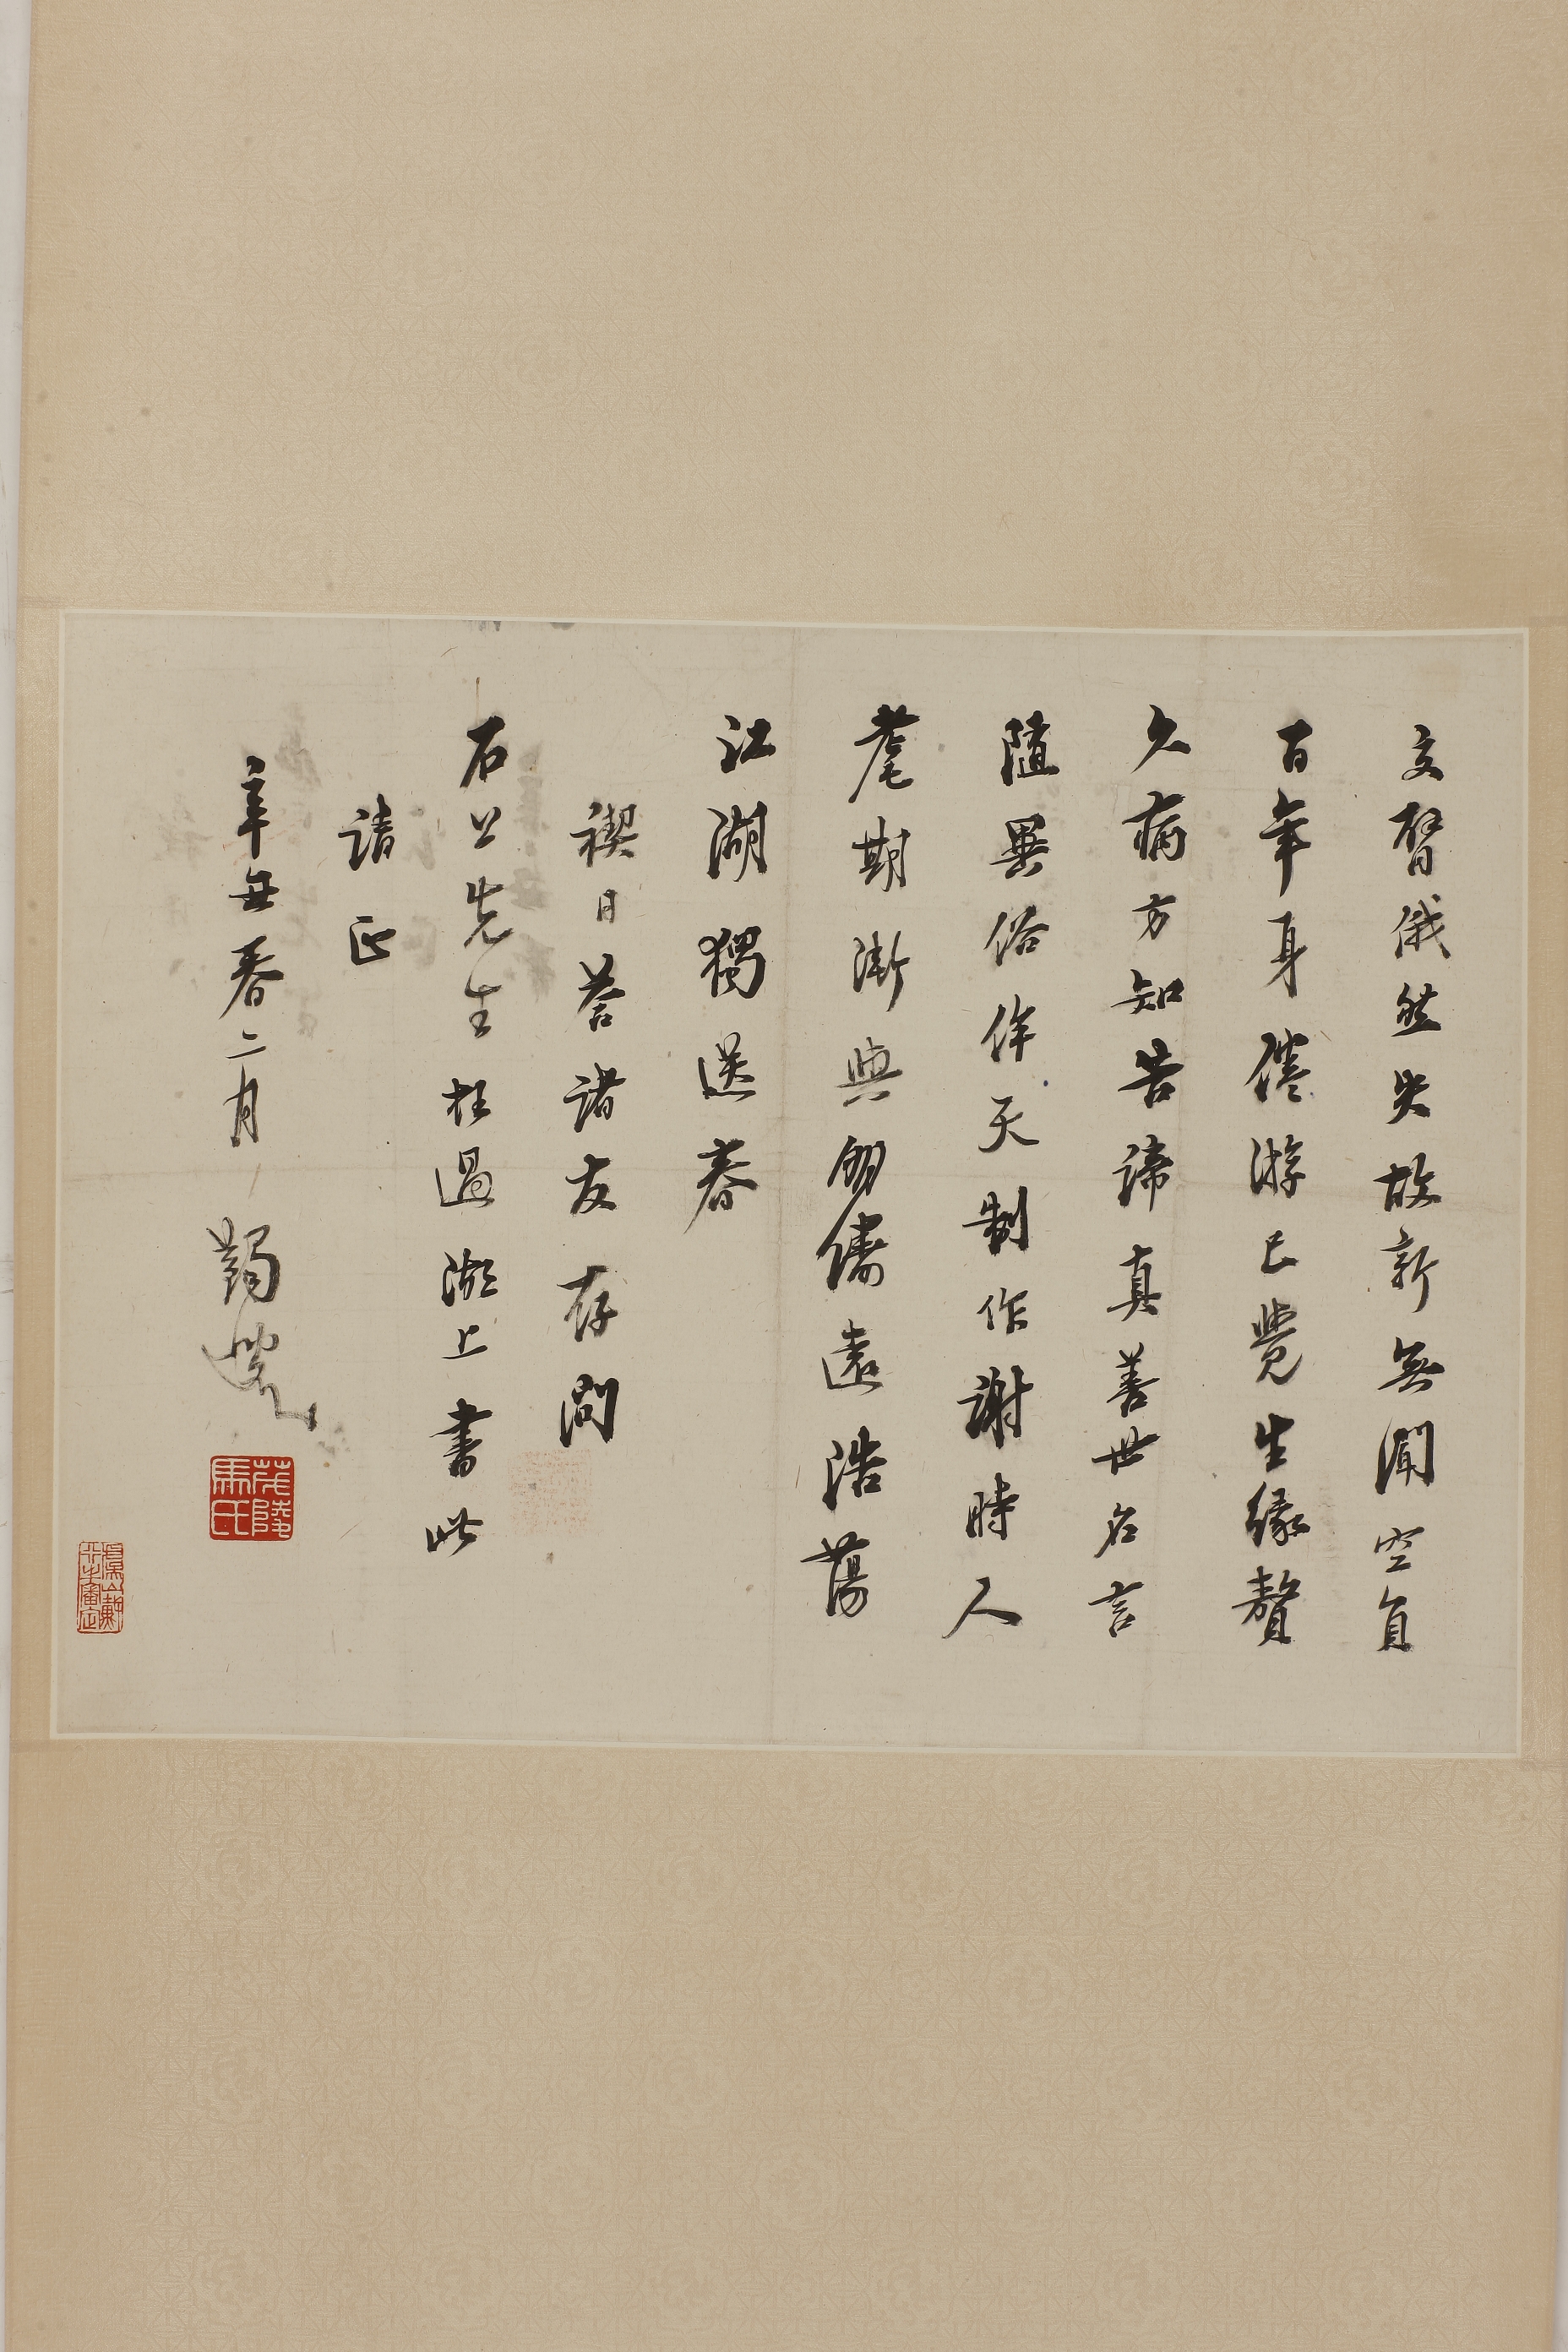 交臂俄然失故新無聞空負
百年身倦游已覺生緣贅
久病方知苦諦真善世名言
隨異俗伴天制作謝時人
耄期漸與朋儔遠浩蕩
江湖獨送春
禊日荅諸友存問
石公先生枉過湖上書此
請正
辛丑春二月
蠲叟
茂陵馬氏